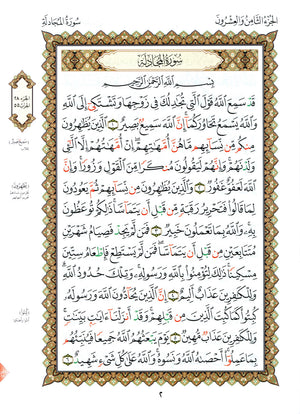 الجزء الثامن والعشرون
سورة المجادلة
سورة المجادلة
بسم الله الرحمن الرحيم
قد سمع الله قول التي تجادلك في زوجها وتشتكي إلى الله
والله يسمع تحاوركما إن الله سميع بصير ١ الذين يظهرون
منكم من نسائهم ما هن أمهتهم إن أمهتهم إلا الئي
ولدنهم وإنهم ليقولون منكرا من القول وزورا وإن
الله لعفو غفور ٢ والذين يظهرون من نسائهم ثم يعودون
لما قالوا فتحرير رقبة من قبل أن يتماسا ذلكم توعظون
به والله بما تعملون خبير ٣ فمن لم يجد فصيام شهرين
متتابعين من قبل أن يتماسا فمن لم يستطع فإطعام ستين
مسكينا ذلك لتؤمنوا بالله ورسوله وتلك حدود الله
وللكفرين عذاب أليم ٤ إن الذين يحادون الله ورسوله
كبتوا كما كبت الذين من قبلهم وقد أنزلنا ءايت بينت
وللكفرين عذاب مهين ٥ يوم يبعثهم الله جميعا فينبئهم
بما عملوا أحصىه الله ونسوه والله على كل شيء شهيد ٦
٢